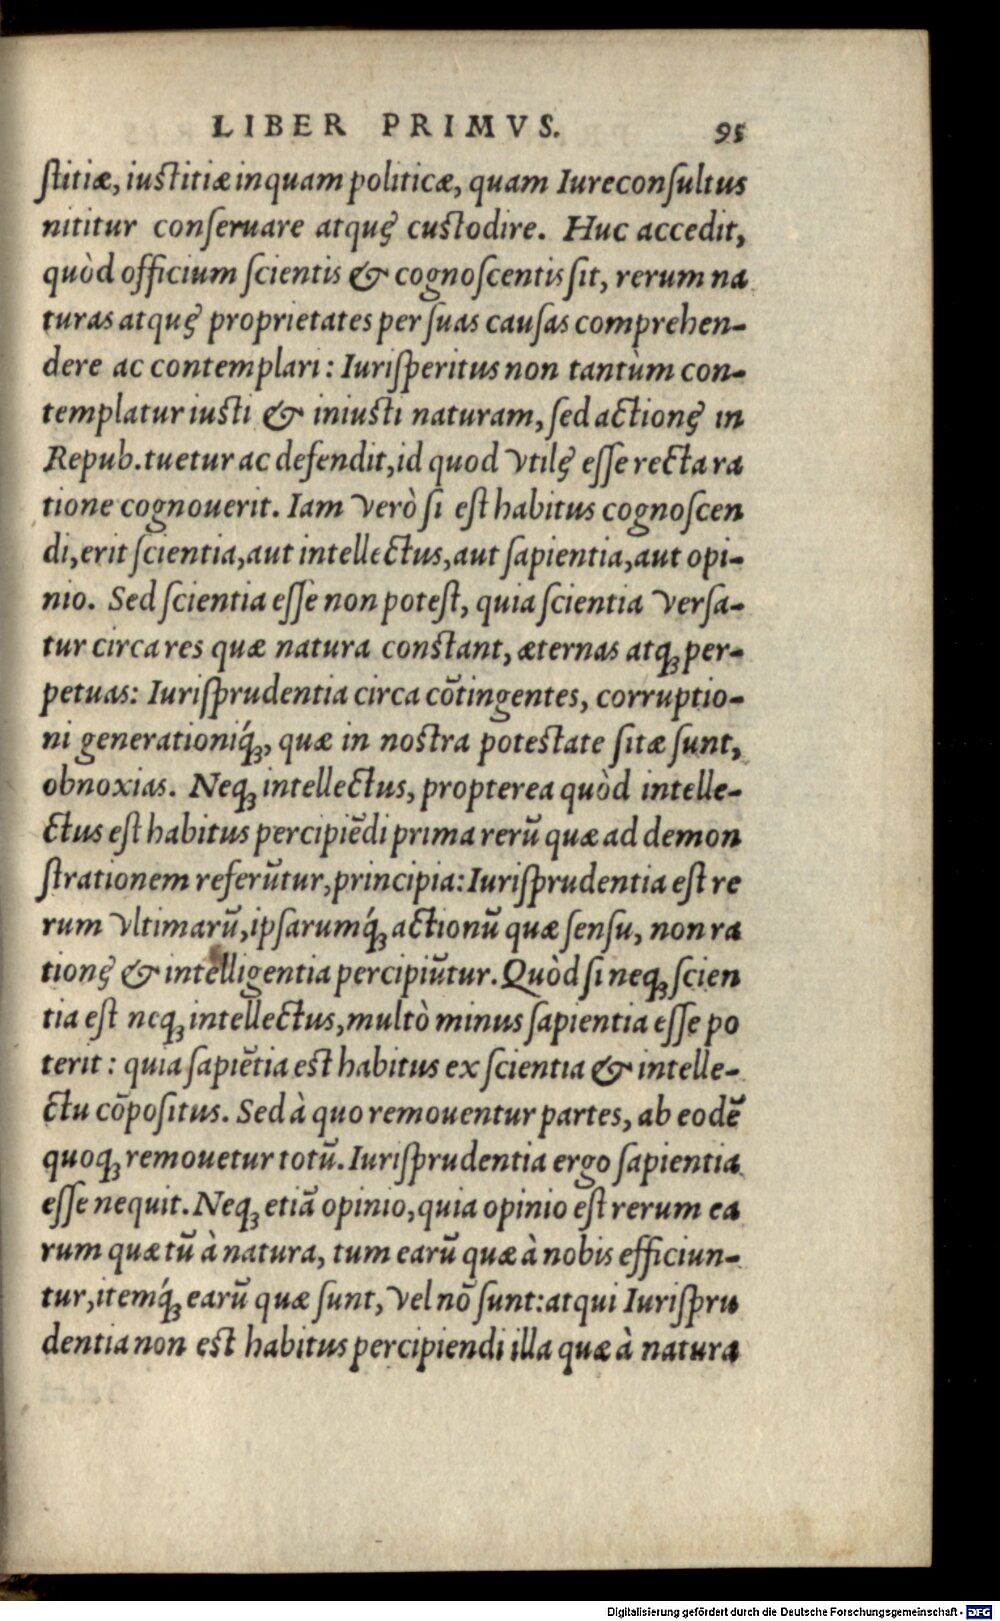 LIBER PRIMVS. 95
ſtitiæ, iuſtitiæ inquam politicæ, quam Iureconſultus
nititur conſeruare atque᷒ cuſtodire. Huc accedit,
quòd officium ſcientis & cognoſcentis ſit, rerum na
turas atque᷒ proprietates per ſuas cauſas comprehen-
dere ac contemplari: Iuriſperitus non tantùm con-
templatur iuſti & iniuſti naturam, ſed actione᷒ in
Repub. tuetur ac defendit, id quod vtile᷒ eſſe recta ra
tione cognouerit. Iam verò ſi eſt habitus cognoſcen
di, erit ſcientia, aut intellectus, aut ſapientia, aut opi-
nio. Sed ſcientia eſſe non poteſt, quia ſcientia verſa-
tur circa res quæ natura conſtant, æternas atq; per-
petuas: Iuriſprudentia circa cōtingentes, corruptio-
ni generationiq́;, quæ in noſtra poteſtate ſitæ ſunt,
obnoxias. Neq; intellectus, propterea quòd intelle-
ctus eſt habitus percipiēdi prima rerū quæ ad demon
ſtrationem referūtur, principia: Iuriſprudentia eſt re
rum vltimarū, ipſarumq́; actionū quæ ſenſu, non ra
tione᷒ & intelligentia percipiūtur. Quòd ſi neq; ſcien
tia eſt neq; intellectus, multò minus ſapientia eſſe po
terit: quia ſapiētia eſt habitus ex ſcientia & intelle-
ctu cōpoſitus. Sed à quo remouentur partes, ab eodē
quoq; remouetur totū. Iuriſprudentia ergo ſapientia
eſſe nequit. Neq; etiā opinio, quia opinio eſt rerum ea
rum quæ tū à natura, tum earū quæ à nobis efficiun-
tur, itemq́; earū quæ ſunt, vel nō ſunt: atqui Iuriſpru
dentia non eſt habitus percipiendi illa quæ à natura
Digitalisierung gefördert durch die Deutsche Forschungsgemeinschaft - DFG